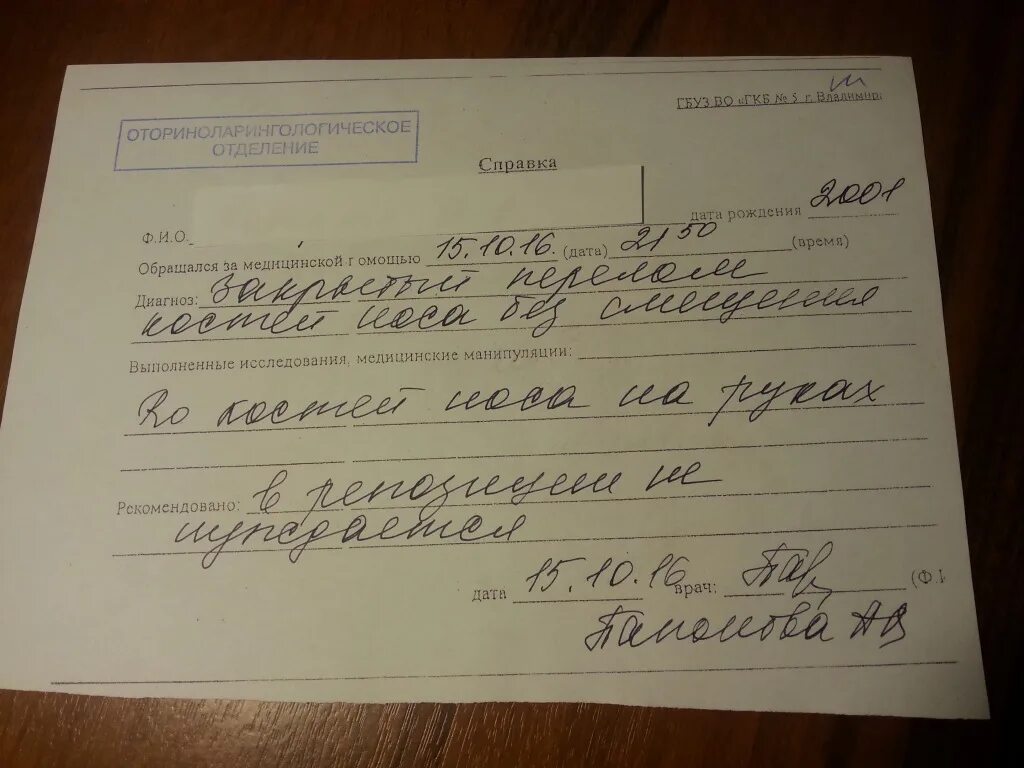 ГБУЗ ВО «ГКБ № 5 г. Владимир»
ОТОРИНОЛАРИНГОЛОГИЧЕСКОЕ
ОТДЕЛЕНИЕ
Справка
Ф.И.О. дата рождения 2001
Обращался за медицинской помощью 15.10.16. (дата) 21 50 (время)
Диагноз: Закрытый перелом
костей носа без смещения
Выполненные исследования, медицинские манипуляции:
Ro костей носа на руках
Рекомендовано: в репозиции не
нуждается
дата 15.10.16 врач: (Ф.И
А В